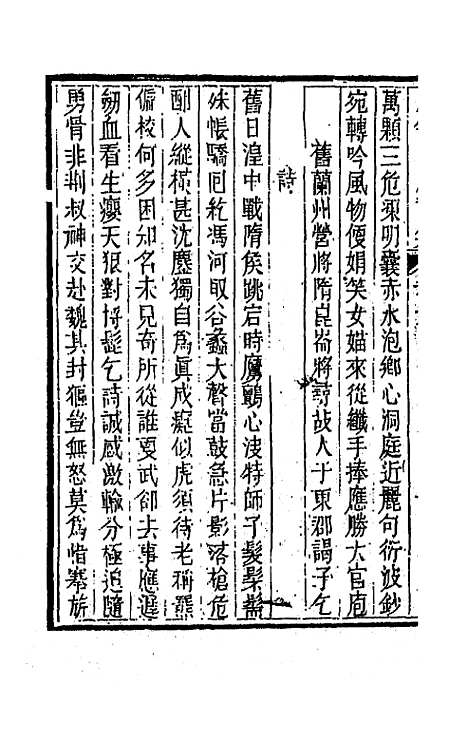 萬顆三危粟明囊赤水泡鄉心洞庭近麗句衍波鈔
宛轉吟風物便娟笑女媌來從纖手捧應勝大官庖
舊蘭州營將隋崑崙將尋故人于東郡謁予乞
詩
舊日湟中戰隋侯跳宕時鷹鸇心淩特師子髮鬖
姝悵驕回紇馮河取谷蠡大聲當鼓急片影落槍危
酣人縱橫甚沈塵獨自為真成癡似虎須待老稱羆
偏校何多困知名未見奇所從誰夏武卻去事應遲
血看生癭天狼對捋髭乞詩誠感激輸分極追隨
勇骨非荆叔神交赴魏其封豨豈無怒莫為惜搴旂